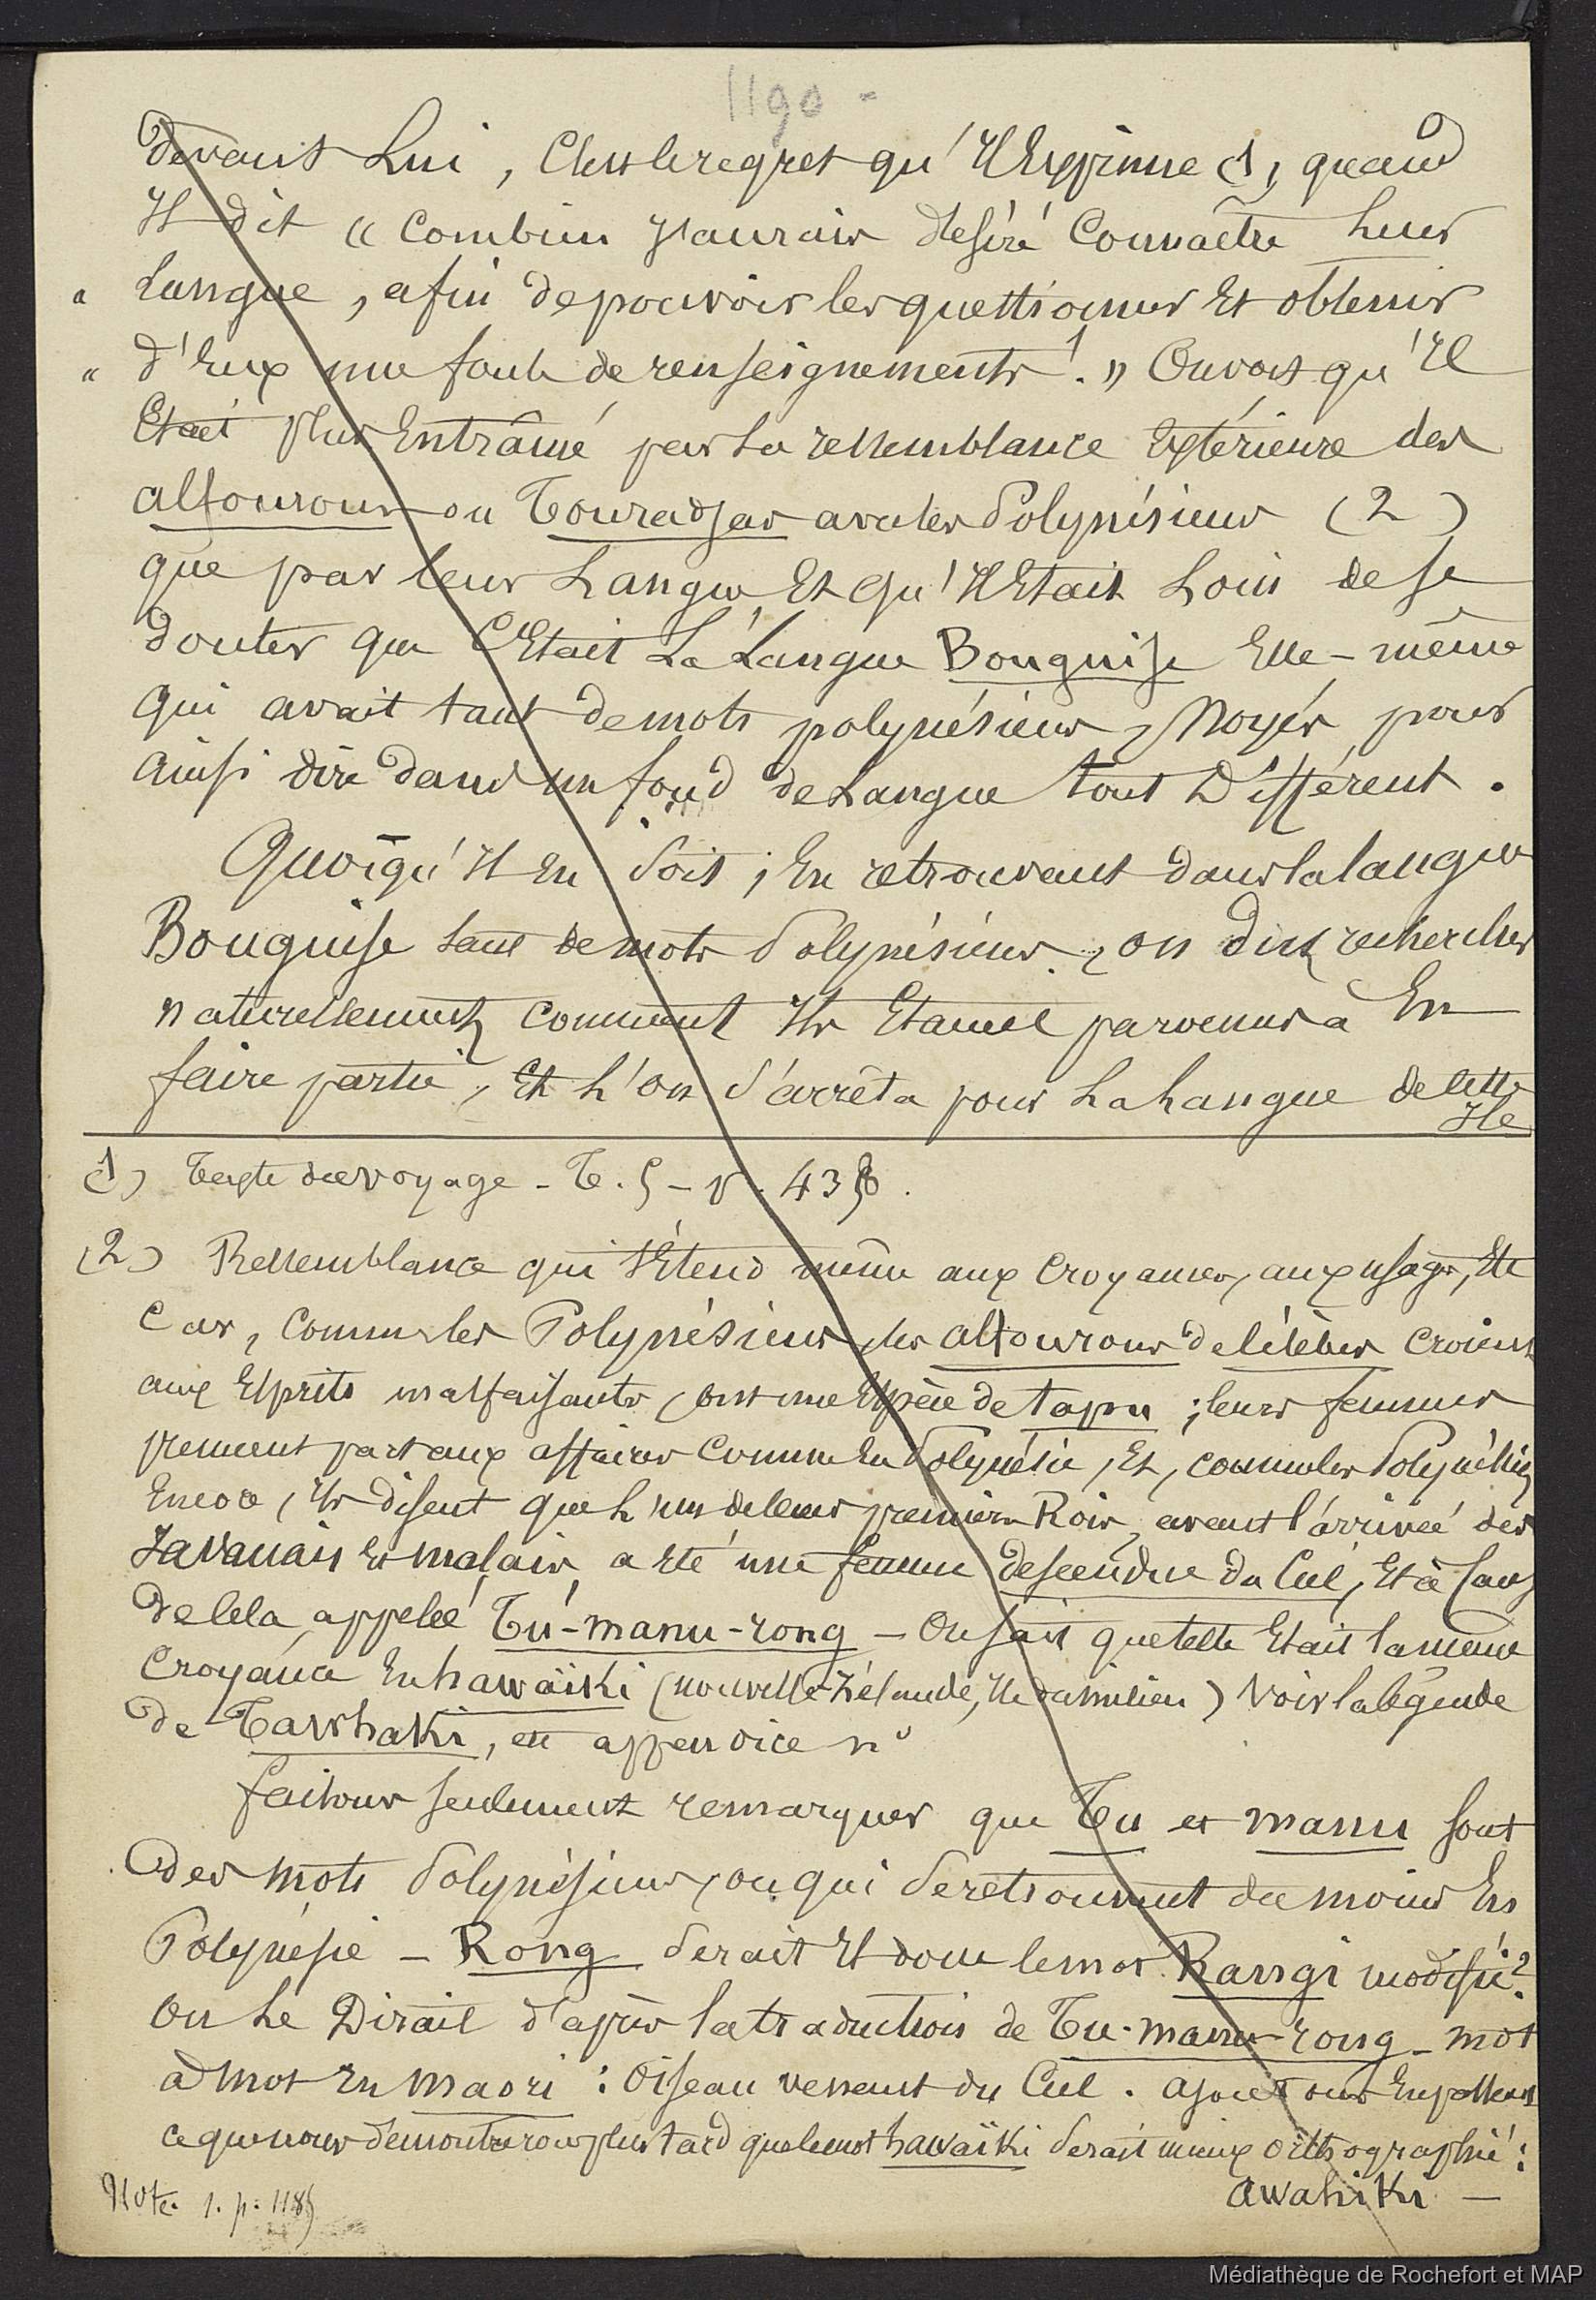 1190 -
devant Lui, C'est le regret qu'Il Exprime (1), quand
Il dit « Combien J'aurais désiré Connaître Leur
« Langue, afin de pouvoir les questionner Et obtenir
« d'Eux une foule de renseignements. » On voit qu'Il
Etait plus Entraîné par La ressemblance Extérieure des
alfourous ou Touradjas avec les Polynésiens (2)
que par leur Langue, Et qu'Il Etait Loin de se
douter que C'Etait La Langue Bouguise Elle-même
qui avait tant de mots polynésiens, Noyés pour
ainsi dire dans un fond de Langue tout Différent.
Quoiqu'Il En soit, En retrouvant dans la langue
Bouguise tant de mots Polynésiens, on dut rechercher
naturellement comment Ils Etaient parvenus à En
faire partie, Et L'on s'arrêta pour La Langue de cette
Ile
(1) Texte du voyage - T. 5 - p. 438.
(2) Ressemblance qui s'Etend même aux Croyances, aux usages, Etc
Car, Comme les Polynésiens, les alfourous de Célèbes Croient
aux Esprits malfaisants, ont une Espèce de tapu ; leurs femmes
prennent part aux affaires Comme En Polynésie, Et, comme les Polynésiens
Encore, Ils disent que L'un de leurs premiers Rois, avant l'arrivée des
Javanais Et malais, a Eté une femme descendue du Ciel, Et à Cause
de cela, appelée Tú-manu-rong - On sait que telle Etait la même
Croyance En hawaïki (nouvelle-Zélande, Ile du milieu) Voir la légende
de Tawhaki, en appendice n°
faisons seulement remarquer que Tu et manu sont
des mots Polynésiens, ou qui se retrouvent du moins En
Polynésie - Rong serait Il donc le mot Rangi modifié ?
On Le Dirait d'après la traduction de Tu-manu-rong - mot
à mot En maori : Oiseau venant du Ciel. ajoutons En passant
ce que nous démontrerons plus tard que le mot hawaïki serait mieux orthographié :
awahiki -
Note. 1. p. 1185
Médiathèque de Rochefort et MAP